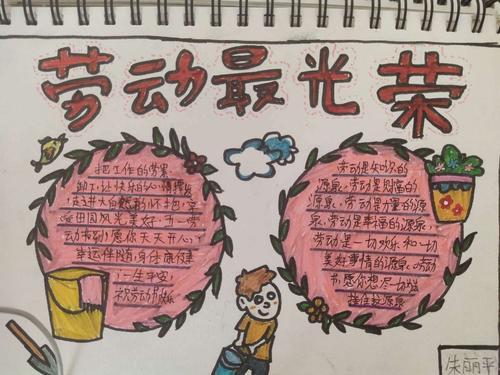 劳动最光荣
把工作的劳累
卸下,让快乐的心情撑
走进大自然的怀抱,享
田园风光美好,五一劳
动节到,愿你天天开心,
幸运伴随,身体康健
一生平安
祝劳动节快乐
劳动是知识的
源泉,劳动是力量的源
泉,劳动是幸福的源泉,
劳动是一切欢乐和一切
美好事情的源泉,劳动
节愿你想尽一切
朱丽平